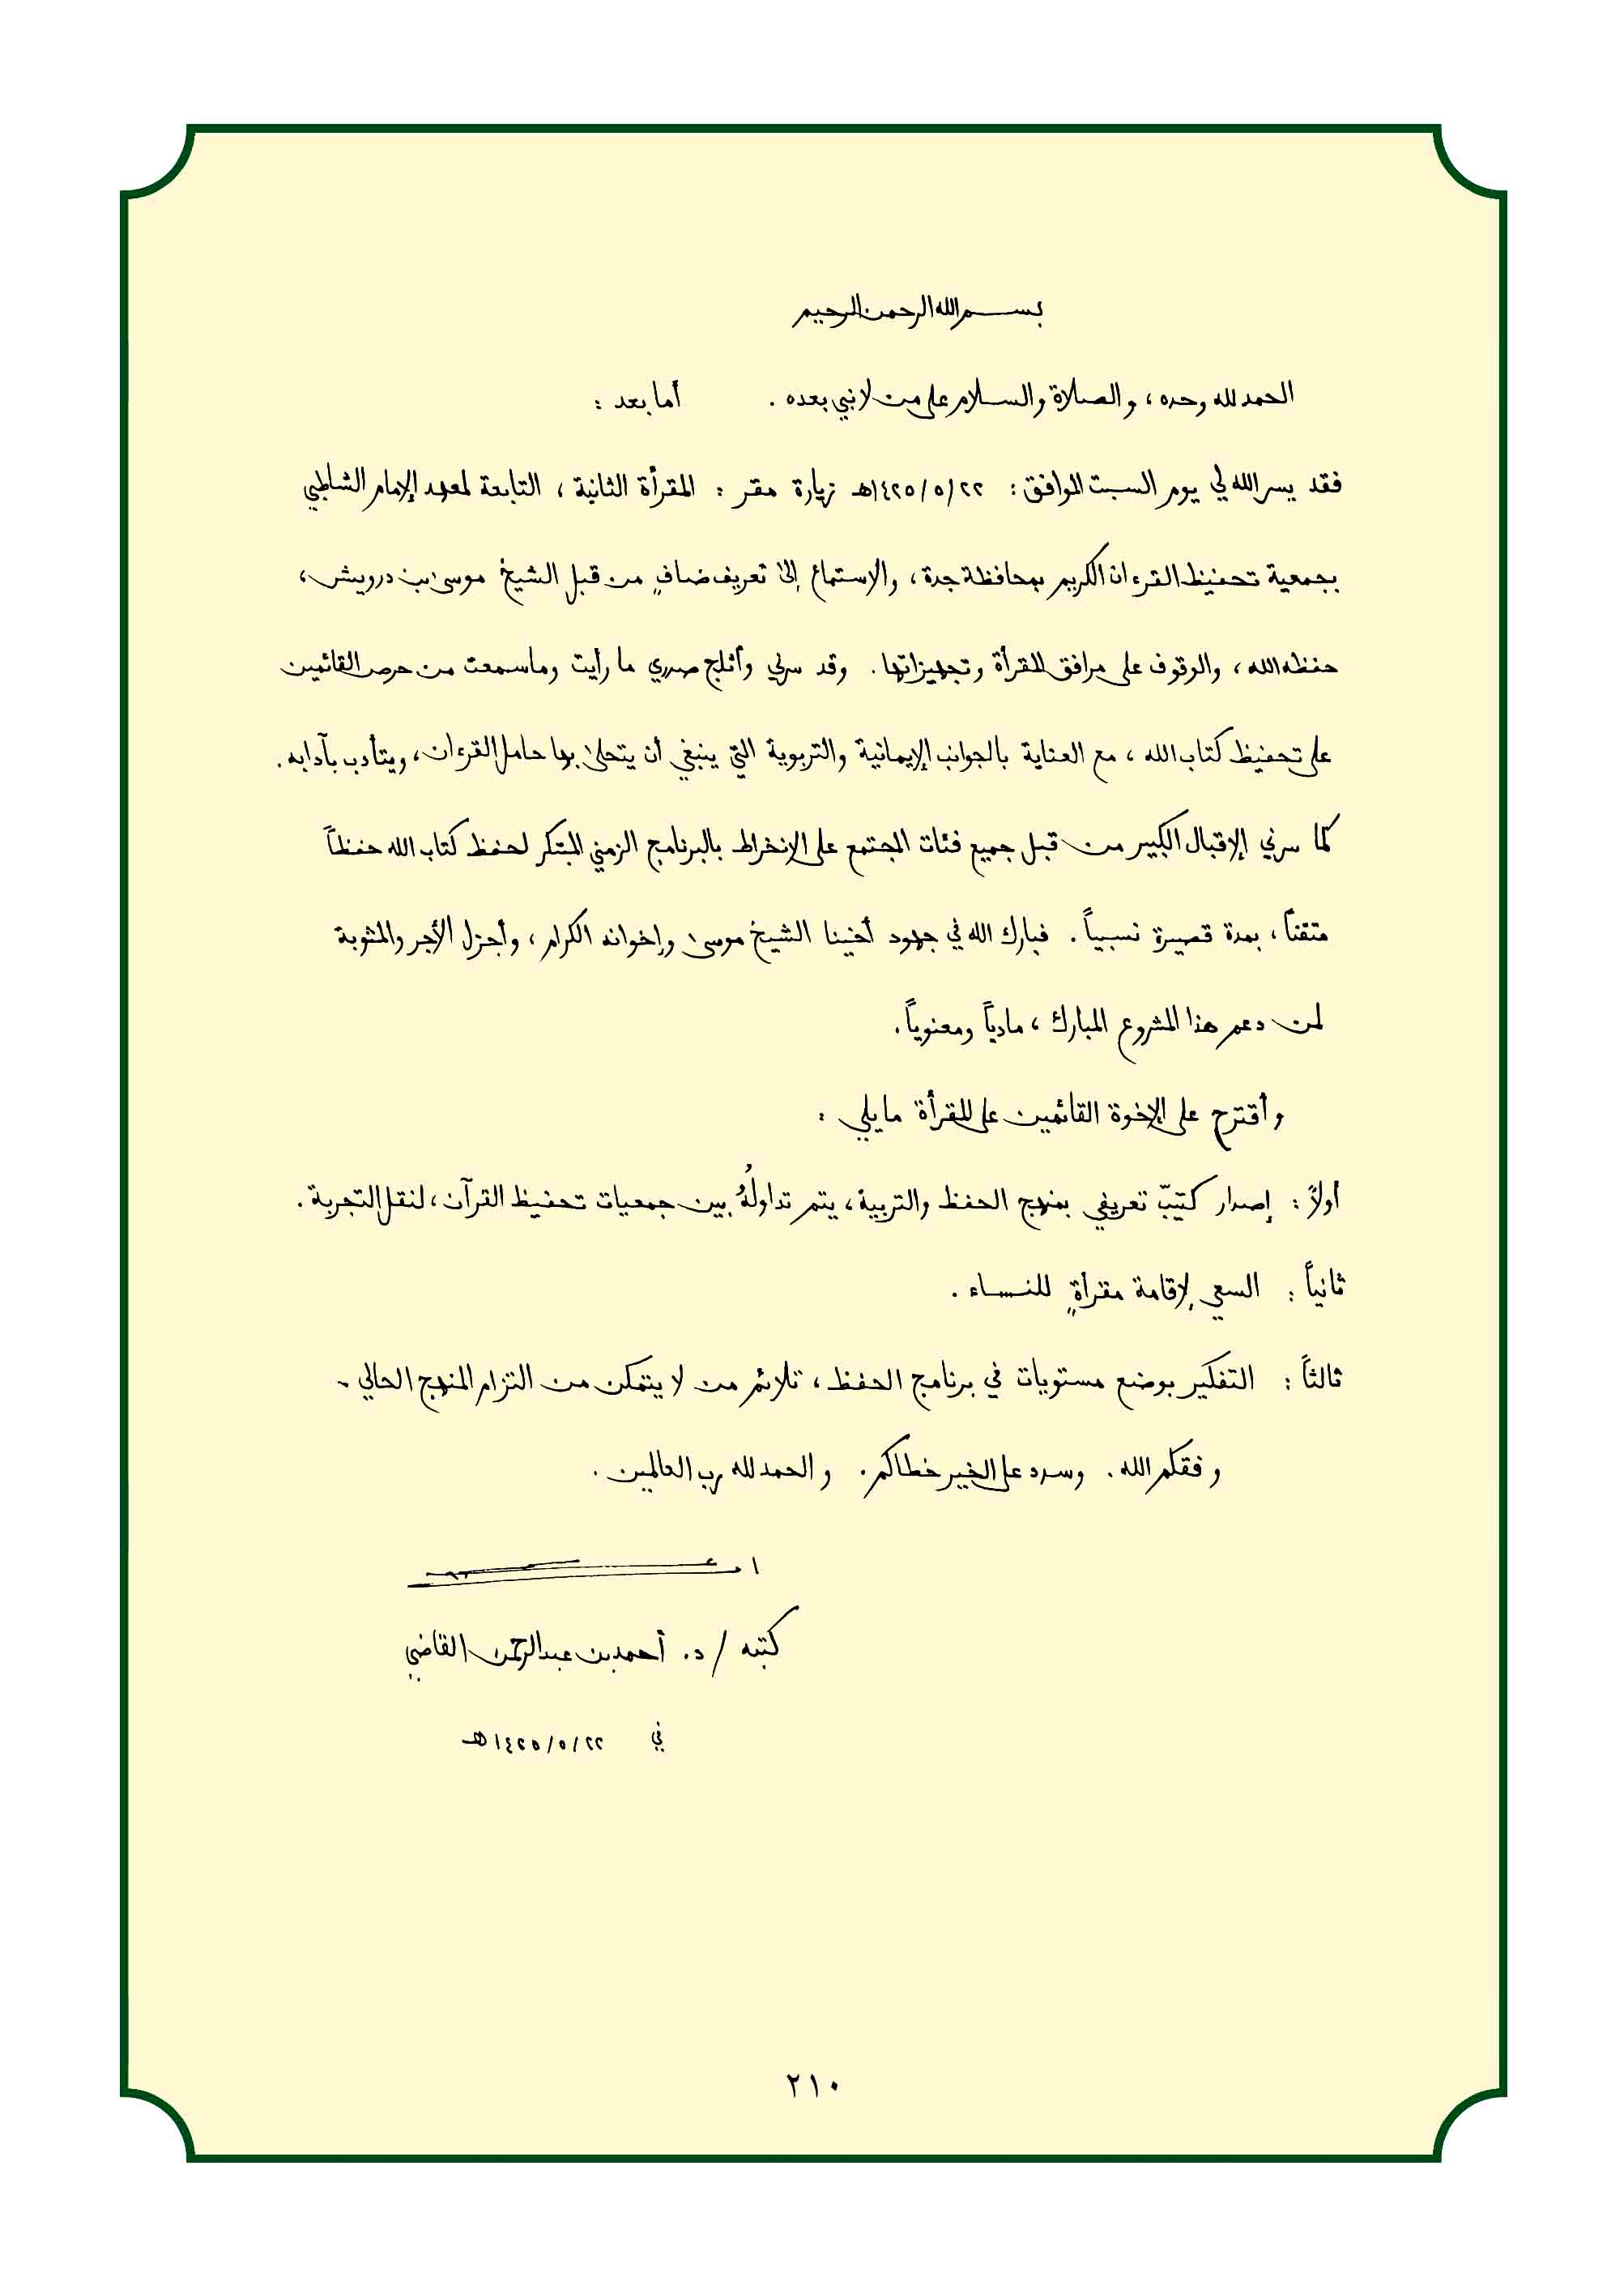 بسم الله الرحمن الرحيم
الحمد لله وحده ، والصلاة والسلام على من لا نبي بعده . أما بعد :
فقد يسر الله لي يوم السبت الموافق : ٢٢/٥/١٤٢٥هـ زيارة مقر : المقرأة الثانية ، التابعة لمعهد الإمام الشاطبي
بجمعية تحفيظ القرءان الكريم بمحافظة جدة ، والاستماع إلى تعريف ضافٍ من قبل الشيخ موسى بن درويش ،
حفظه الله ، والوقوف على مرافق المقرأة وتجهيزاتها . وقد سرني وأثلج صدري ما رأيت وما سمعت من حرص القائمين
على تحفيظ كتاب الله ، مع العناية بالجوانب الإيمانية والتربوية التي ينبغي أن يتحلى بها حامل القرءان ، ويتأدب بآدابه .
كما سرني الإقبال الكبير من قبل جميع فئات المجتمع على الانخراط بالبرنامج الزمني المبتكر لحفظ كتاب الله حفظاً
متقناً ، بمدة قصيرة نسبياً . فبارك الله في جهود أخينا الشيخ موسى وإخوانه الكرام ، وأجزل الأجر والمثوبة
لمن دعم هذا المشروع المبارك ، مادياً ومعنوياً .
وأقترح على الإخوة القائمين على المقرأة ما يلي :
أولاً : إصدار كتيّب تعريفي بمنهج الحفظ والتربية ، يتم تداولُهُ بين جمعيات تحفيظ القرآن ، لنقل التجربة .
ثانياً : السعي لإقامة مقرأةٍ للنساء .
ثالثاً : التفكير بوضع مستويات في برنامج الحفظ ، تلائم من لا يتمكن من التزام المنهج الحالي .
وفقكم الله . وسدد على الخير خطاكم . والحمد لله رب العالمين .
كتبه / د. أحمد بن عبدالرحمن القاضي
في ٢٢/٥/١٤٢٥هـ
٢١٠